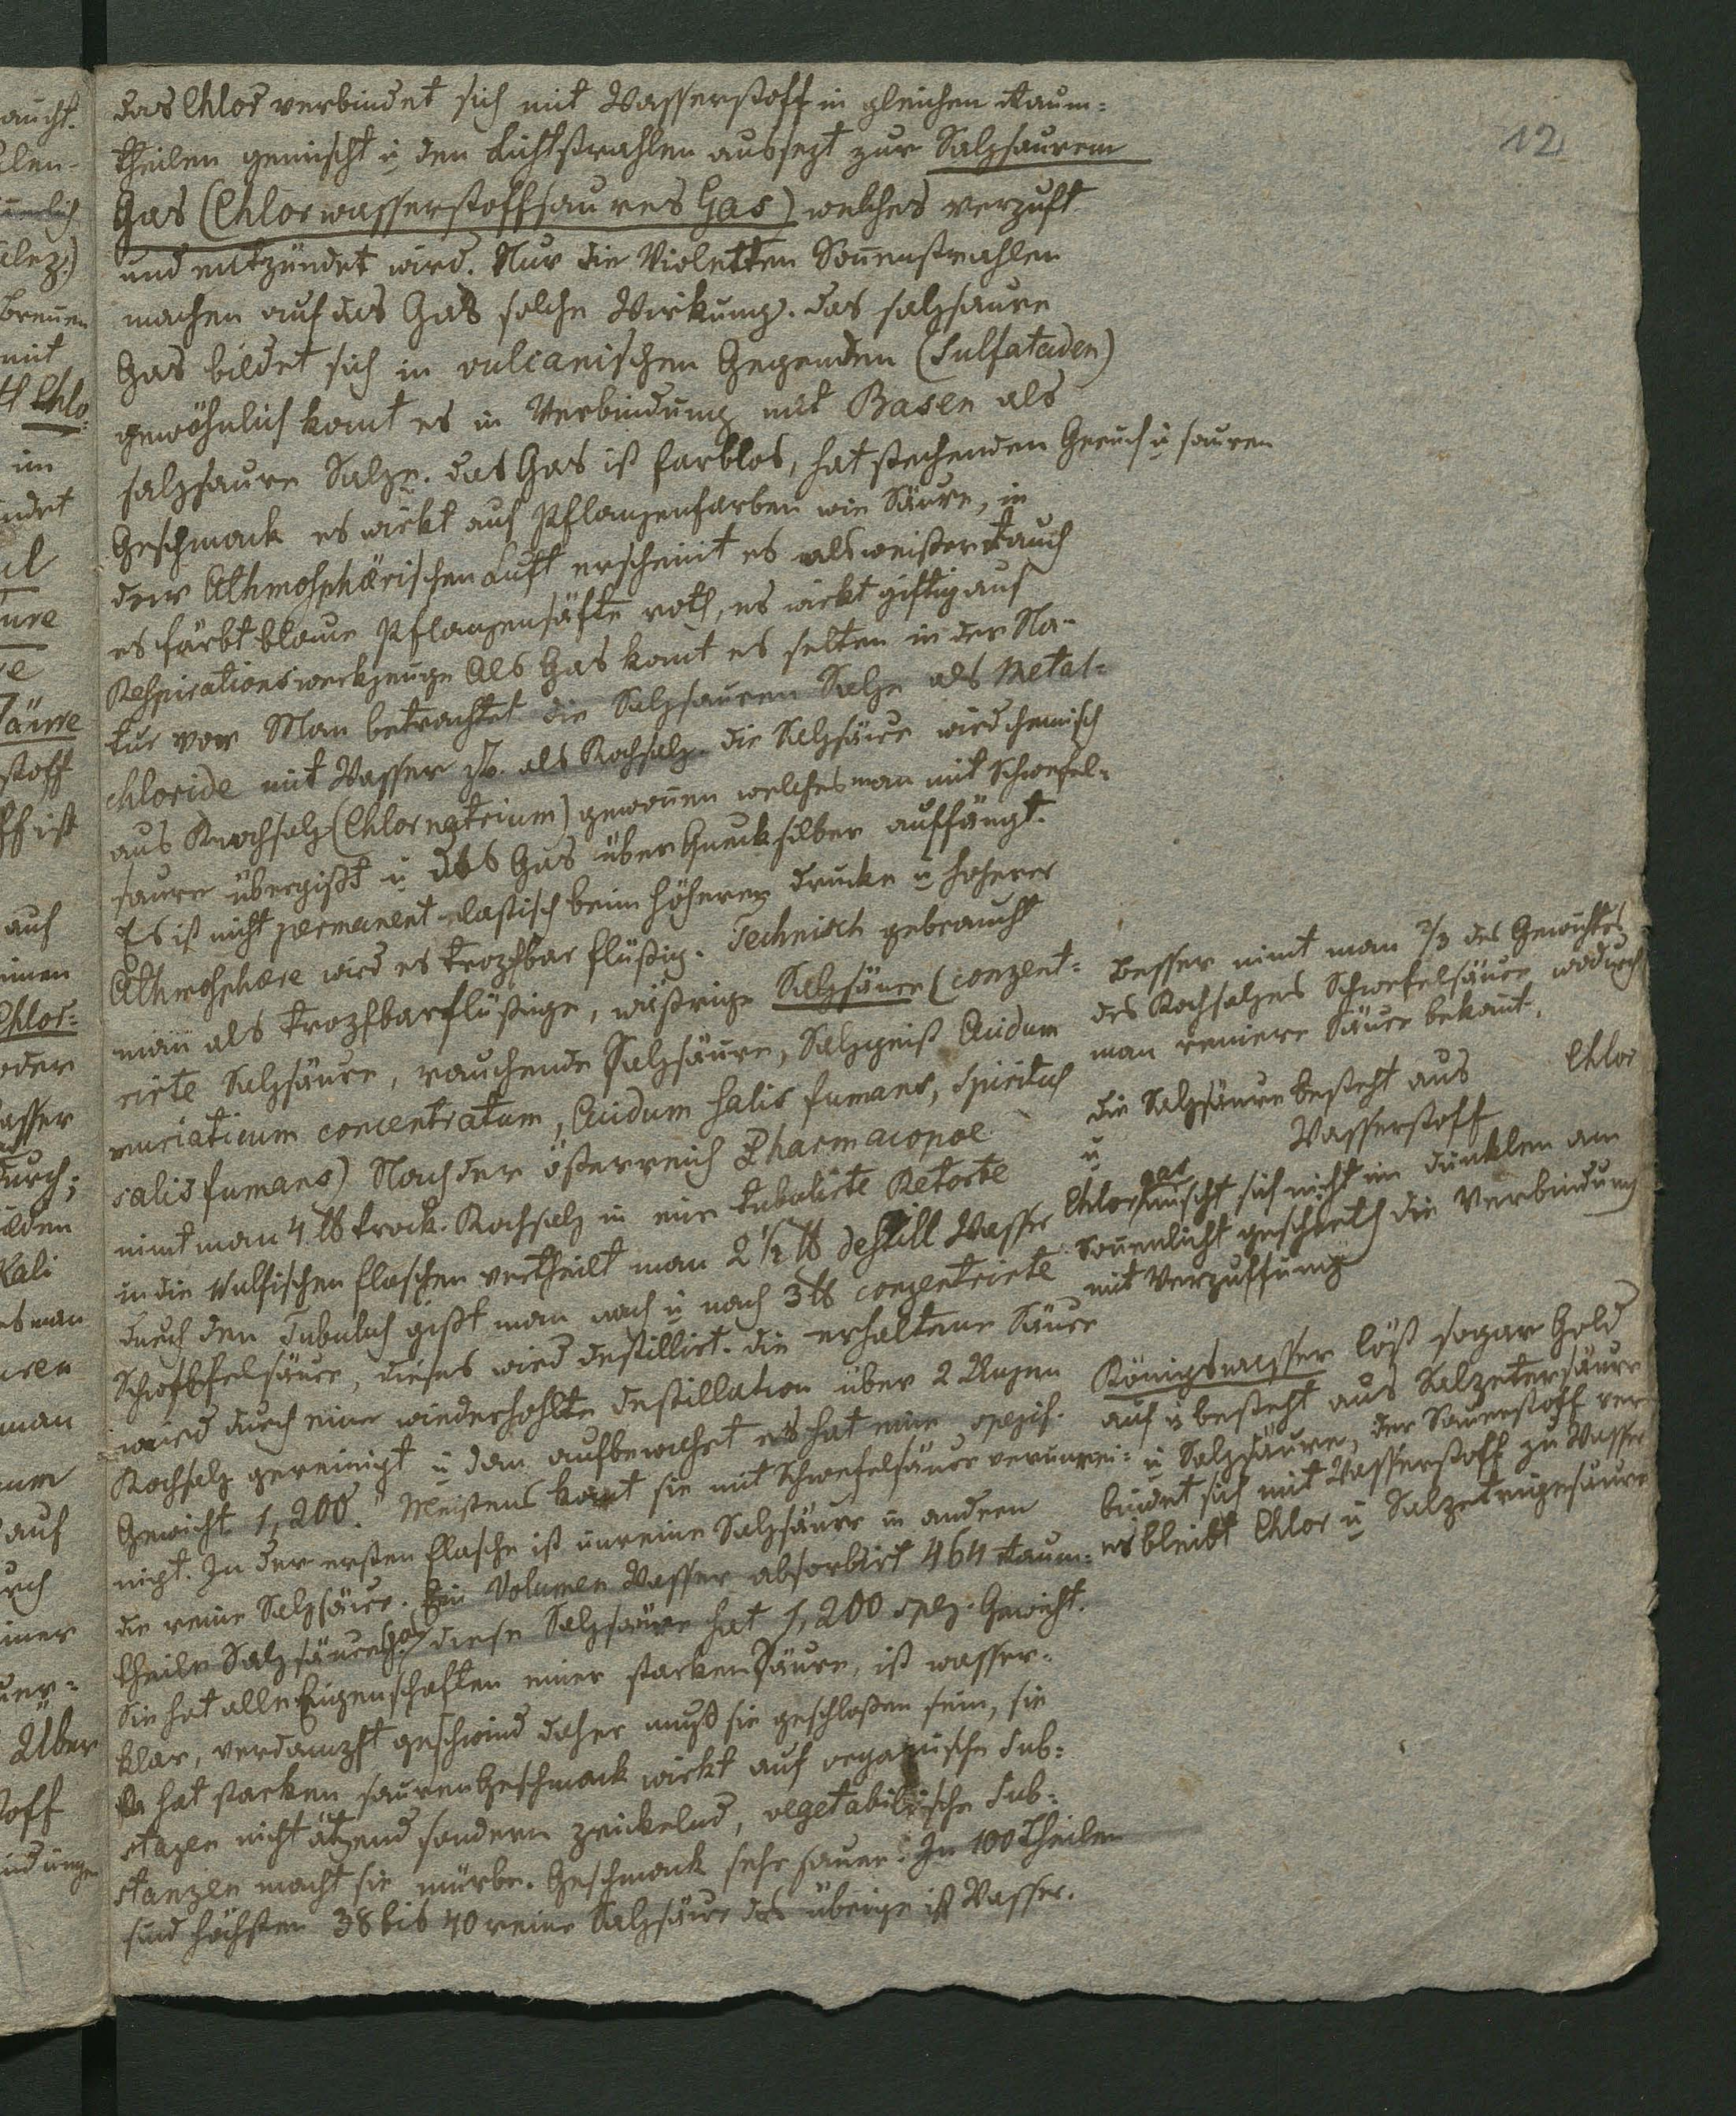 12
das Chlor verbindet sich mit Wasserstoff in gleichen Raum-
theilen gemischt u den Lichtstrahlen aussezt zur Salzsaurem
Gas (Chlorwasserstoffsaures Gas) welches verpuft
und entzündet wird. Nur die Violetten Sonenstrahlen
machen auf das Gas solche Wirkung. das salzsaure
Gas bildet sich in vulcanischen Gegenden (Sulfataden)
gewöhnlich komt es in Verbindung mit Basen als
salzsaure Salze. das Gas ist farblos, hat stechenden Geruch u sauren
Geschmack es wirkt auf Pflanzenfarben wie Säure, in
der Athmosphärischen Luft erscheint es als weißer Rauch
es färbt blaue Pflanzensäfte roth, es wirkt giftig auf
Respirationswerkzeuge Als Gas komt es selten in der Na-
tur vor Man betrachtet die Salzsauren Salze als Metal-
chloride mit Wasser z.B. als Kochsalz. die Salzsäure wird chemisch
aus Kochsalz (Chlornatrium) gewonen welches man mit Schwefel-
saure übergißt u das Gas über Quecksilber auffängt.
Es ist nicht permanent elastisch beim höheren Drucke u hoherer
Athmosphære wird es tropfbar flüßig. Technisch gebraucht
man als tropfbarflüßige, wäßrige Salzsäure (conzent-
rirte Salzsäure, rauchende Salzsäure, Salzgeist Acidum
muriaticum concentratum, Acidum salis fumans, Spiritus
salis fumans) Nach der österreich Pharmacopoe
nimt man 4 ℔ trock. Kochsalz in eine tubulirte Retorte
in die Wulfischen Flaschen vertheilt man 2 1/2 ℔ destill Wasser
durch den Tubulus gißt man nach u nach 3 ℔ conzentrirte
Schwefelsäure, dieses wird destillirt. die erhaltene Säure
wird durch eine wiederhohlte Destillation über 2 Unzen
Kochsalz gereinigt u dan aufbewahrt es hat eine spezif.
Gewicht 1,200. Meistens komt sie mit Schwefelsäure verunrei-
nigt. In der ersten Flasche ist unreine Salzsäure in andern
die reine Salzsäure. Ein Volumen Wasser absorbirt 464 Raum-
theile Salzsäuregas diese Salzsäure hat 1,200 spez. Gewicht.
Sie hat alle Eigenschaften einer starken Säure, ist wasser-
klar, verdampft geschwind daher muß sie geschloßen sein, sie
hat starken sauren Geschmack wirkt auf organische Sub-
stazen nicht ätzend sondern prickelnd, vegetabilische Sub-
stanzen macht sie mürbe. Geschmack sehr sauer. In 100 Theilen
sind höchsten 38 bis 40 reine Salzsäure das übrige ist Wasser.
Besser nimt man 2/3 des Gewichtes
des Kochsalzes Schwefelsäure wodurch
man reinere Säure bekomt.
die Salzsäure besteht aus Chlor
u Wasserstoff
Chlorgas mischt sich nicht im dunklen am
Sonenlicht geschieth die Verbindung
mit Verpuffung
Königswasser löst sogar Gold
auf u besteht aus Salzetersäure
u Salzsäure, der Sauerstoff ver
bindet sich mit Wasserstoff zu Wasser
es bleibt Chlor u Salzetrigesäure